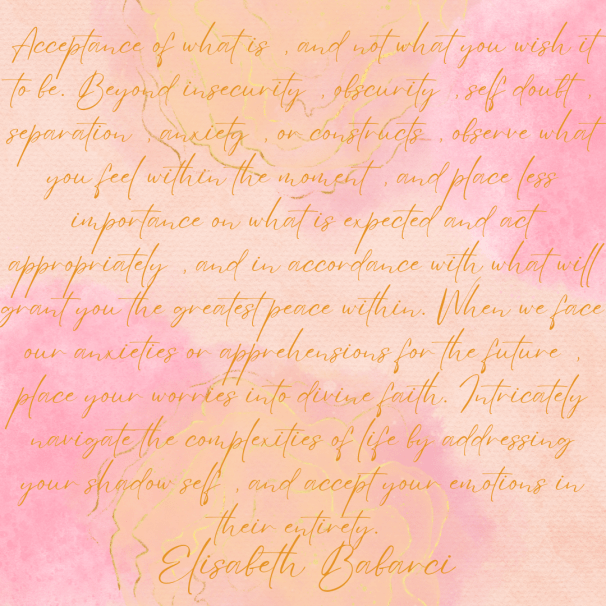 Acceptance of what is , and not what you wish it
to be. Beyond insecurity , obscurity , self doubt ,
separation , anxiety , or constructs , observe what
you feel within the moment , and place less
importance on what is expected and act
appropriately , and in accordance with what will
grant you the greatest peace within. When we face
our anxieties or apprehensions for the future ,
place your worries into divine faith. Intricately
navigate the complexities of life by addressing
your shadow self , and accept your emotions in
their entirety.
Elisabeth Babarci